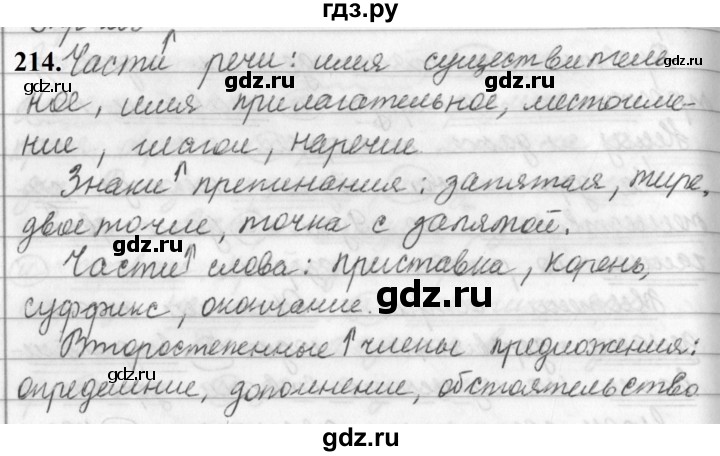 гдз.ру
214. Части↑ речи: имя существитель-
ное, имя прилагательное, местоиме-
ние, глагол, наречие.
Знаки↑ препинания: запятая, тире,
двоеточие, точка с запятой.
Части↑ слова: приставка, корень,
суффикс, окончание.
Второстепенные↑ члены предложения:
определение, дополнение, обстоятельство
gdz.ru
gdz.ru
gdz.ru
gdz.ru
gdz.ru
gdz.ru
gdz.ru